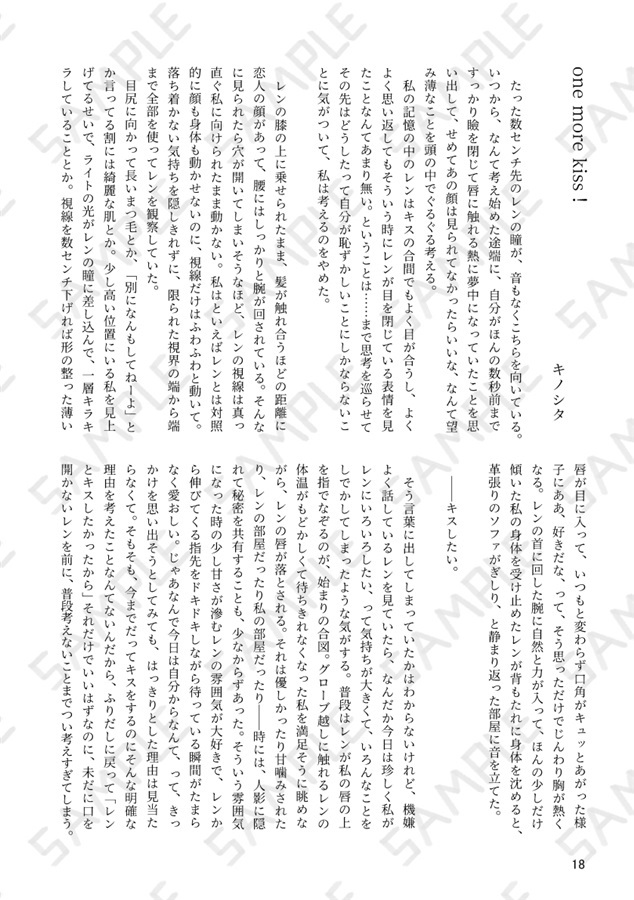 one more kiss！
キノシタ
たった数センチ先のレンの瞳が、音もなくこちらを向いている。
いつから、なんて考え始めた途端に、自分がほんの数秒前まで
すっかり瞼を閉じて唇に触れる熱に夢中になっていたことを思
い出して、せめてあの顔は見られてなかったらいいな、なんて望
み薄なことを頭の中でぐるぐる考える。
私の記憶の中のレンはキスの合間でもよく目が合うし、よく
よく思い返してもそういう時にレンが目を閉じている表情を見
たことなんてあまり無い。ということは……まで思考を巡らせて
その先はどうしたって自分が恥ずかしいことにしかならないこ
とに気がついて、私は考えるのをやめた。
レンの膝の上に乗せられたまま、髪が触れ合うほどの距離に
恋人の顔があって、腰にはしっかりと腕が回されている。そんな
に見られたら穴が開いてしまいそうなほど、レンの視線は真っ
直ぐ私に向けられたまま動かない。私はといえばレンとは対照
的に顔も身体も動かせないのに、視線だけはふわふわと動いて。
落ち着かない気持ちを隠しきれずに、限られた視界の端から端
まで全部を使ってレンを観察していた。
目尻に向かって長いまつ毛とか、「別になんもしてねーよ」と
か言ってる割には綺麗な肌とか。少し高い位置にいる私を見上
げてるせいで、ライトの光がレンの瞳に差し込んで、一層キラキ
ラしていることとか。視線を数センチ下げれば形の整った薄い
唇が目に入って、いつもと変わらず口角がキュッとあがった様
子にああ、好きだな、って、そう思っただけでじんわり胸が熱く
なる。レンの首に回した腕に自然と力が入って、ほんの少しだけ
傾いた私の身体を受け止めたレンが背もたれに身体を沈めると、
革張りのソファがぎしり、と静まり返った部屋に音を立てた。
――キスしたい。
そう言葉に出してしまっていたかはわからないけれど、機嫌
よく話しているレンを見ていたら、なんだか今日は珍しく私が
レンにいろいろしたい、って気持ちが大きくて、いろんなことを
しでかしてしまったような気がする。普段はレンが私の唇の上
を指でなぞるのが、始まりの合図。グローブ越しに触れるレンの
体温がもどかしくて待ちきれなくなった私を満足そうに眺めな
がら、レンの唇が落とされる。それは優しかったり甘噛みされた
り、レンの部屋だったり私の部屋だったり――時には、人影に隠
れて秘密を共有することも、少なからずあった。そういう雰囲気
になった時の少し甘さが滲むレンの雰囲気が大好きで、レンか
ら伸びてくる指先をドキドキしながら待っている瞬間がたまら
なく愛おしい。じゃあなんで今日は自分からなんて、って、きっ
かけを思い出そうとしてみても、はっきりとした理由は見当た
らなくて。そもそも、今までだってキスをするのにそんな明確な
理由を考えたことなんてないんだから、ふりだしに戻って「レン
とキスしたかったから」それだけでいいはずなのに、未だに口を
開かないレンを前に、普段考えないことまでつい考えすぎてしまう。
18
SAMPLE